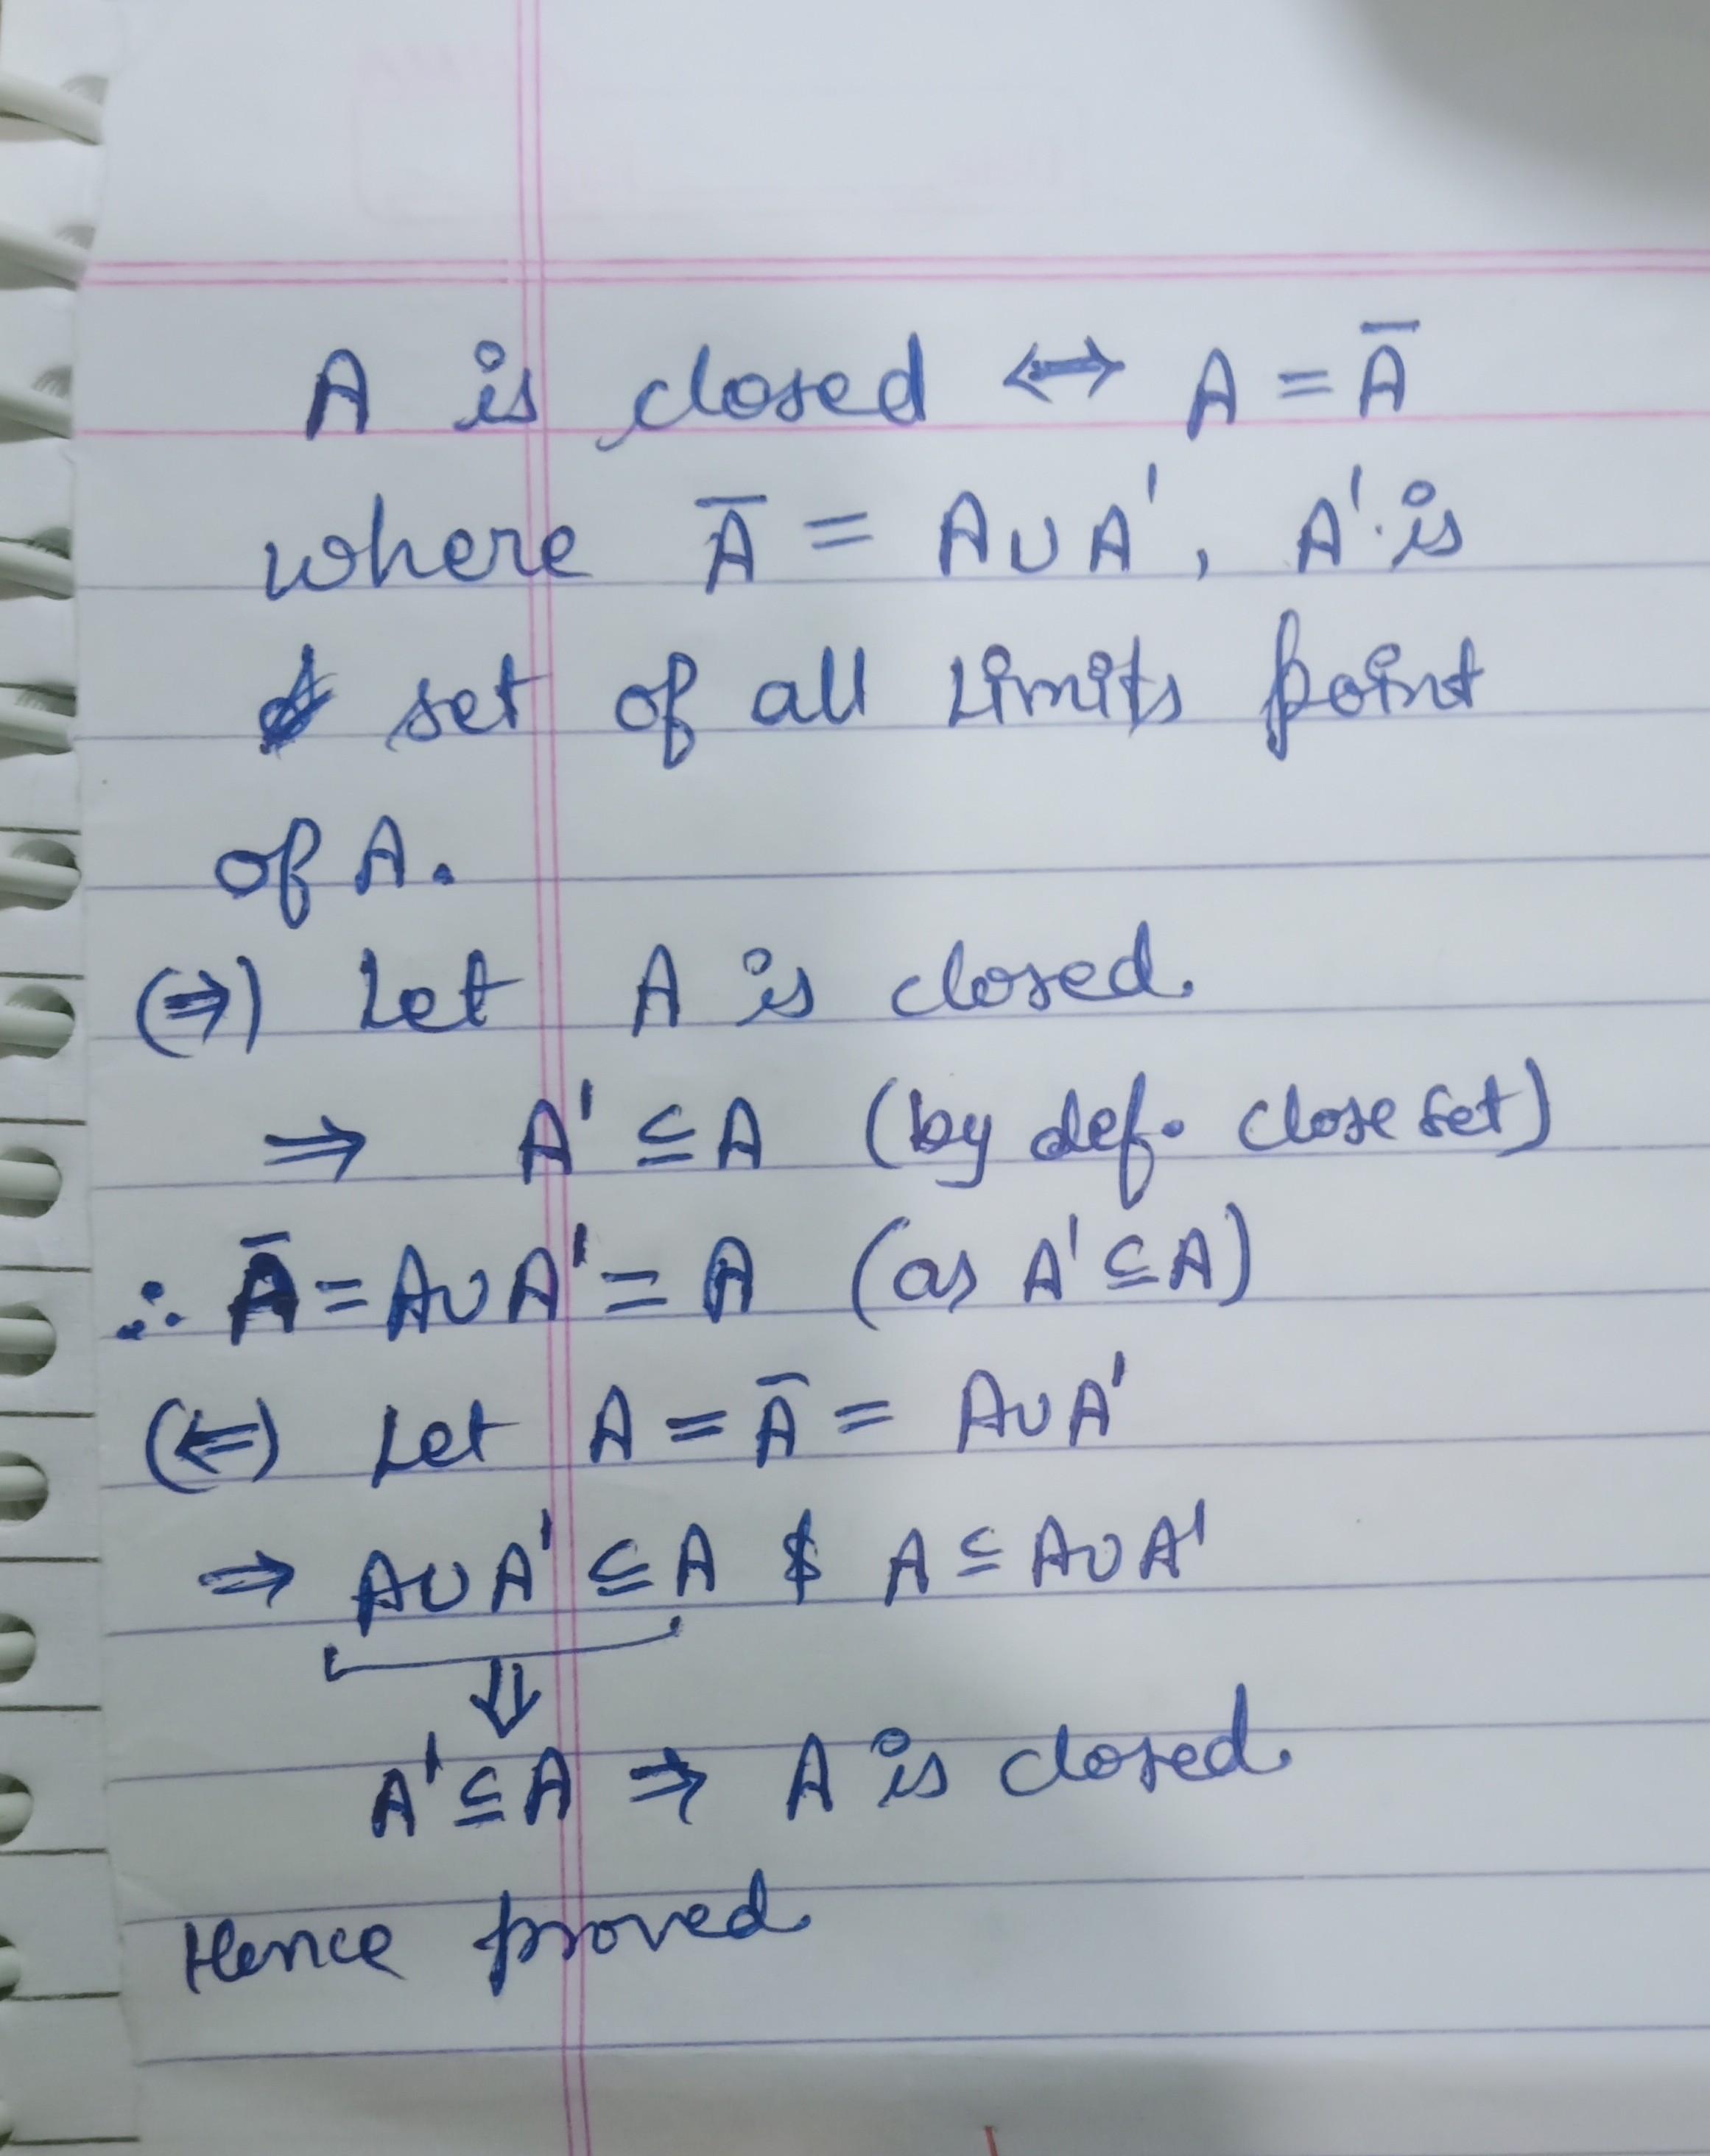 A is closed ↔ A = Ā
where Ā = A∪A', A' is
set of all Limits point
of A.
(⇒) Let A is closed.
⇒ A' ⊆ A (by def. close set)
∴ Ā = A∪A' = A (as A' ⊆ A)
(⇐) Let A = Ā = A∪A'
⇒ A∪A' ⊆ A & A ⊆ A∪A'
⇓
A' ⊆ A ⇒ A is closed.
Hence proved